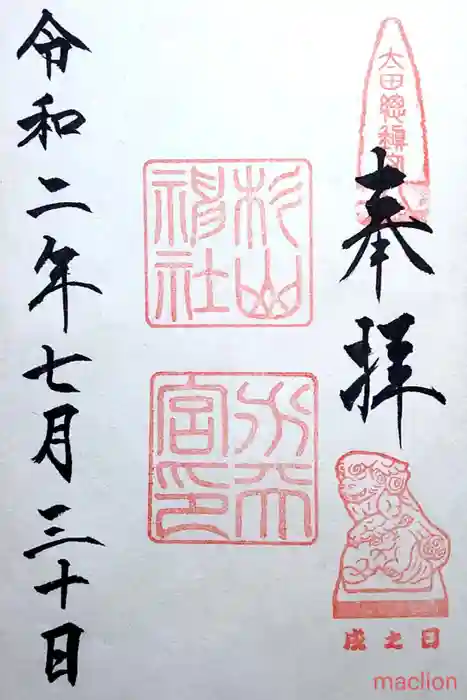 太田總鎮守
奉拝
杉山
神社
水天
宮印
戌之日
令和二年七月三十日
maclion